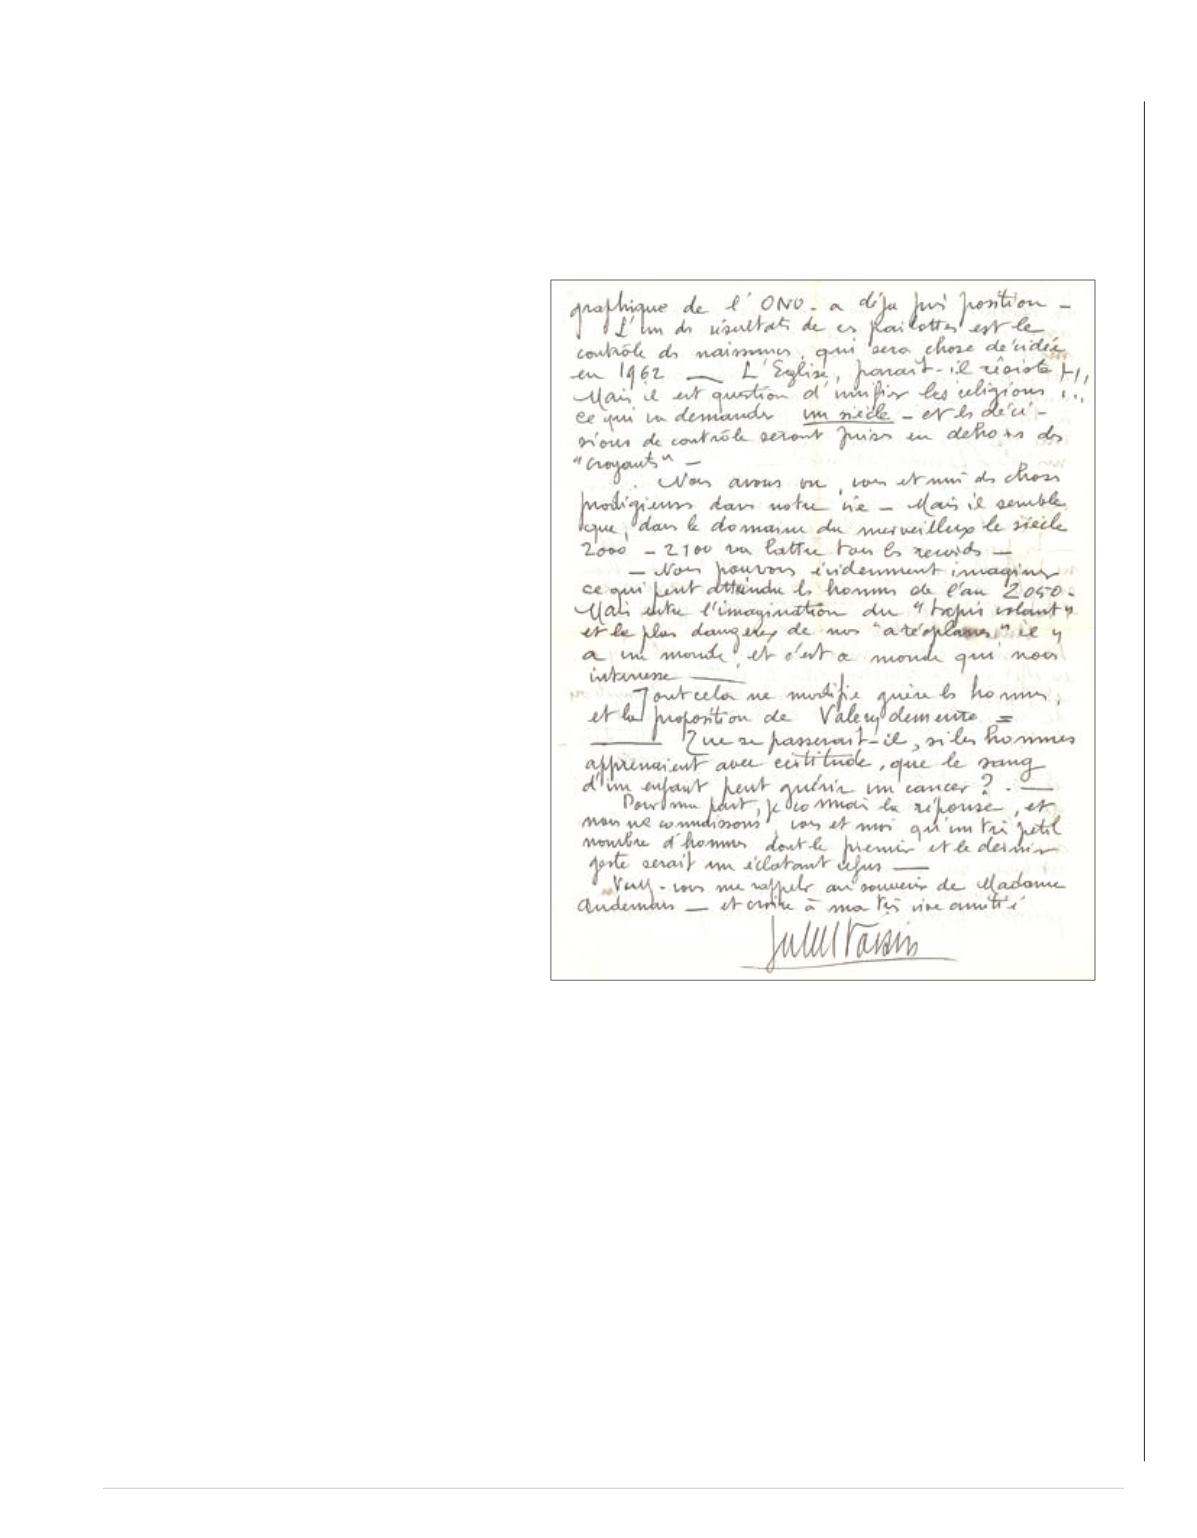 graphique de l'ONU - a déja pris position -
L'un ds résultats de ces parlottes est le
contrôle ds naissances, qui sera chose décidée
en 1962 — L'Eglise, parait-il résiste !!,
Mais il est question d'unifier les religions ...
ce qui va demander un siècle - et ls déci-
sions de contrôle seront prises en dehors des
"croyants" -
Nous avons vu, vous et moi ds choses
prodigieuses dans notre vie - Mais il semble
que, dans le domaine du merveilleux le siècle
2000 - 2100 va battre tous ls records -
- Nous pouvons évidemment imaginer
ce qui peut attendre ls hommes de l'an 2050 -
Mais entre l'imagination du "tapis volant"
et le plus dangereux de nos "aréoplanes" il y
a un monde, et c'est ce monde qui nous
intéresse —
Tout cela ne modifie guère ls hommes,
et la proposition de Valery demeure =
— Que se passerait-il, si les hommes
apprenaient avec certitude, que le sang
d'un enfant peut guérir un cancer ? . —
Pour ma part, je connais la réponse, et
nous ne connaissons, vous et moi qu'un très petit
nombre d'hommes dont le premier et le dernier
geste serait un éclatant refus —
Veuillez-vous me rappeler au souvenir de Madame
Audemars — et croire à ma très vive amitié